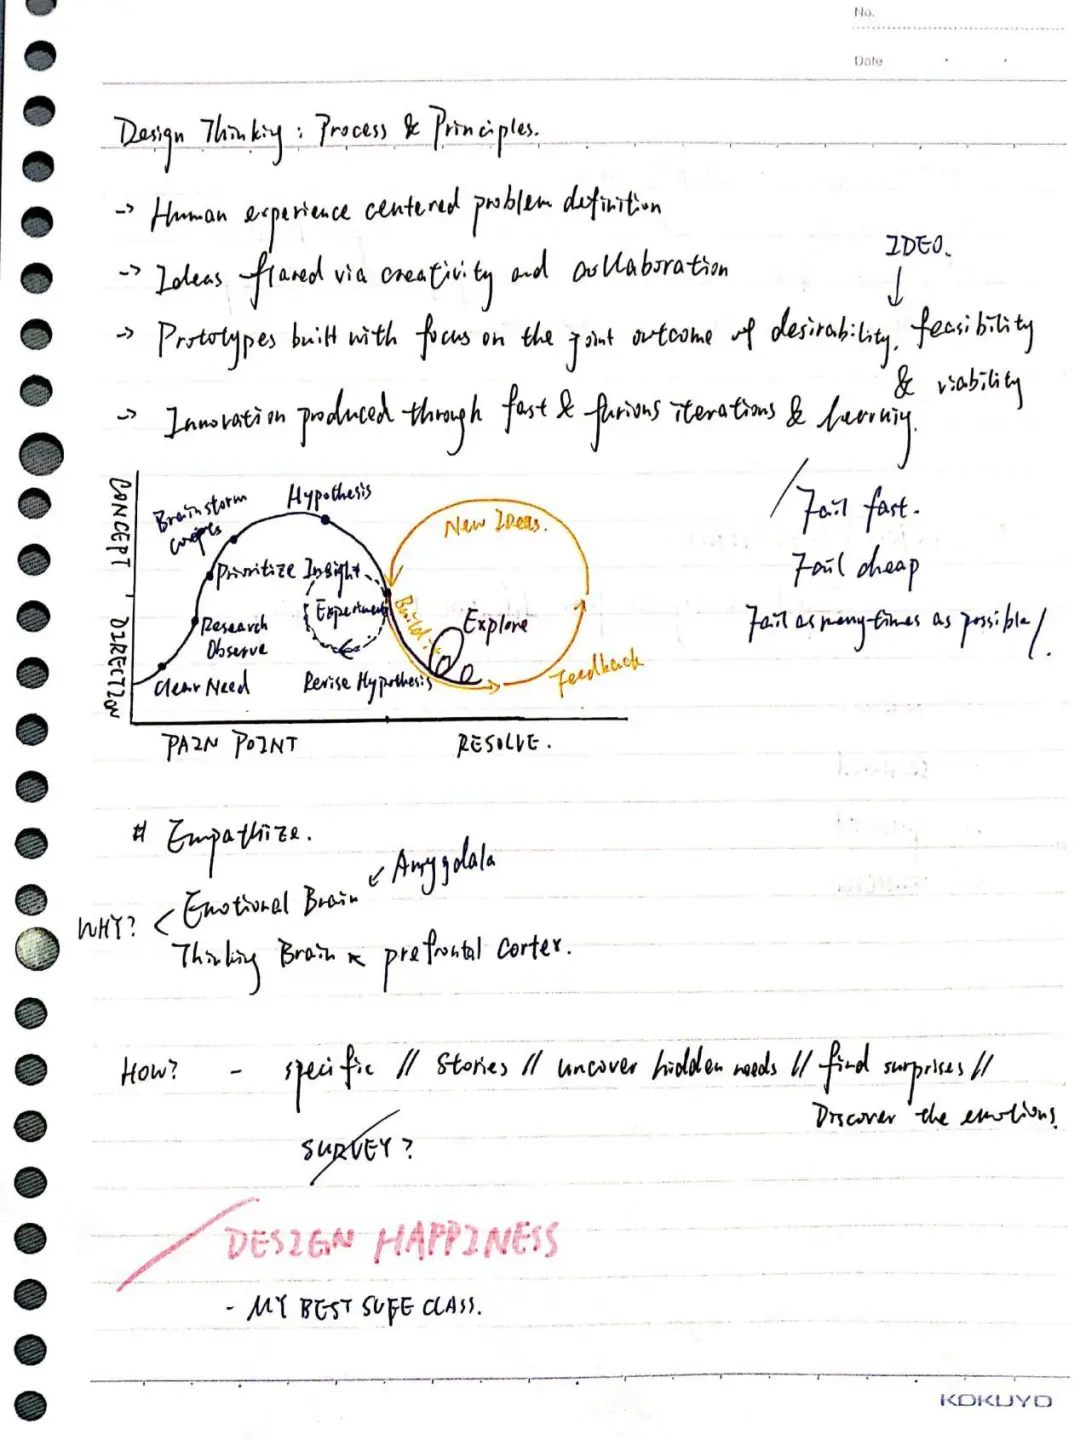 No.
Date
Design Thinking : Process & Principles.
-> Human experience centered problem definition
IDEO.
-> Ideas flared via creativity and collaboration
-> Prototypes built with focus on the joint outcome of desirability, feasibility
& viability
-> Innovation produced through fast & furious iterations & learning.
/ Fail fast.
Fail cheap
Fail as many times as possible /.
CONCEPT
DIRECTION
Hypothesis
Brainstorm
New Ideas.
Prioritize Insight
Experiment
Build
Explore
Research
Observe
Clear Need
Revise Hypothesis
Feedback
PAIN POINT
RESOLVE.
# Empathize.
Amygdala
WHY?
Emotional Brain
Thinking Brain
prefrontal cortex.
HOW? - specific // Stories // uncover hidden needs // find surprises //
Discover the emotions.
SURVEY?
DESIGN HAPPINESS
- MY BEST SUFE CLASS.
KOKUYO